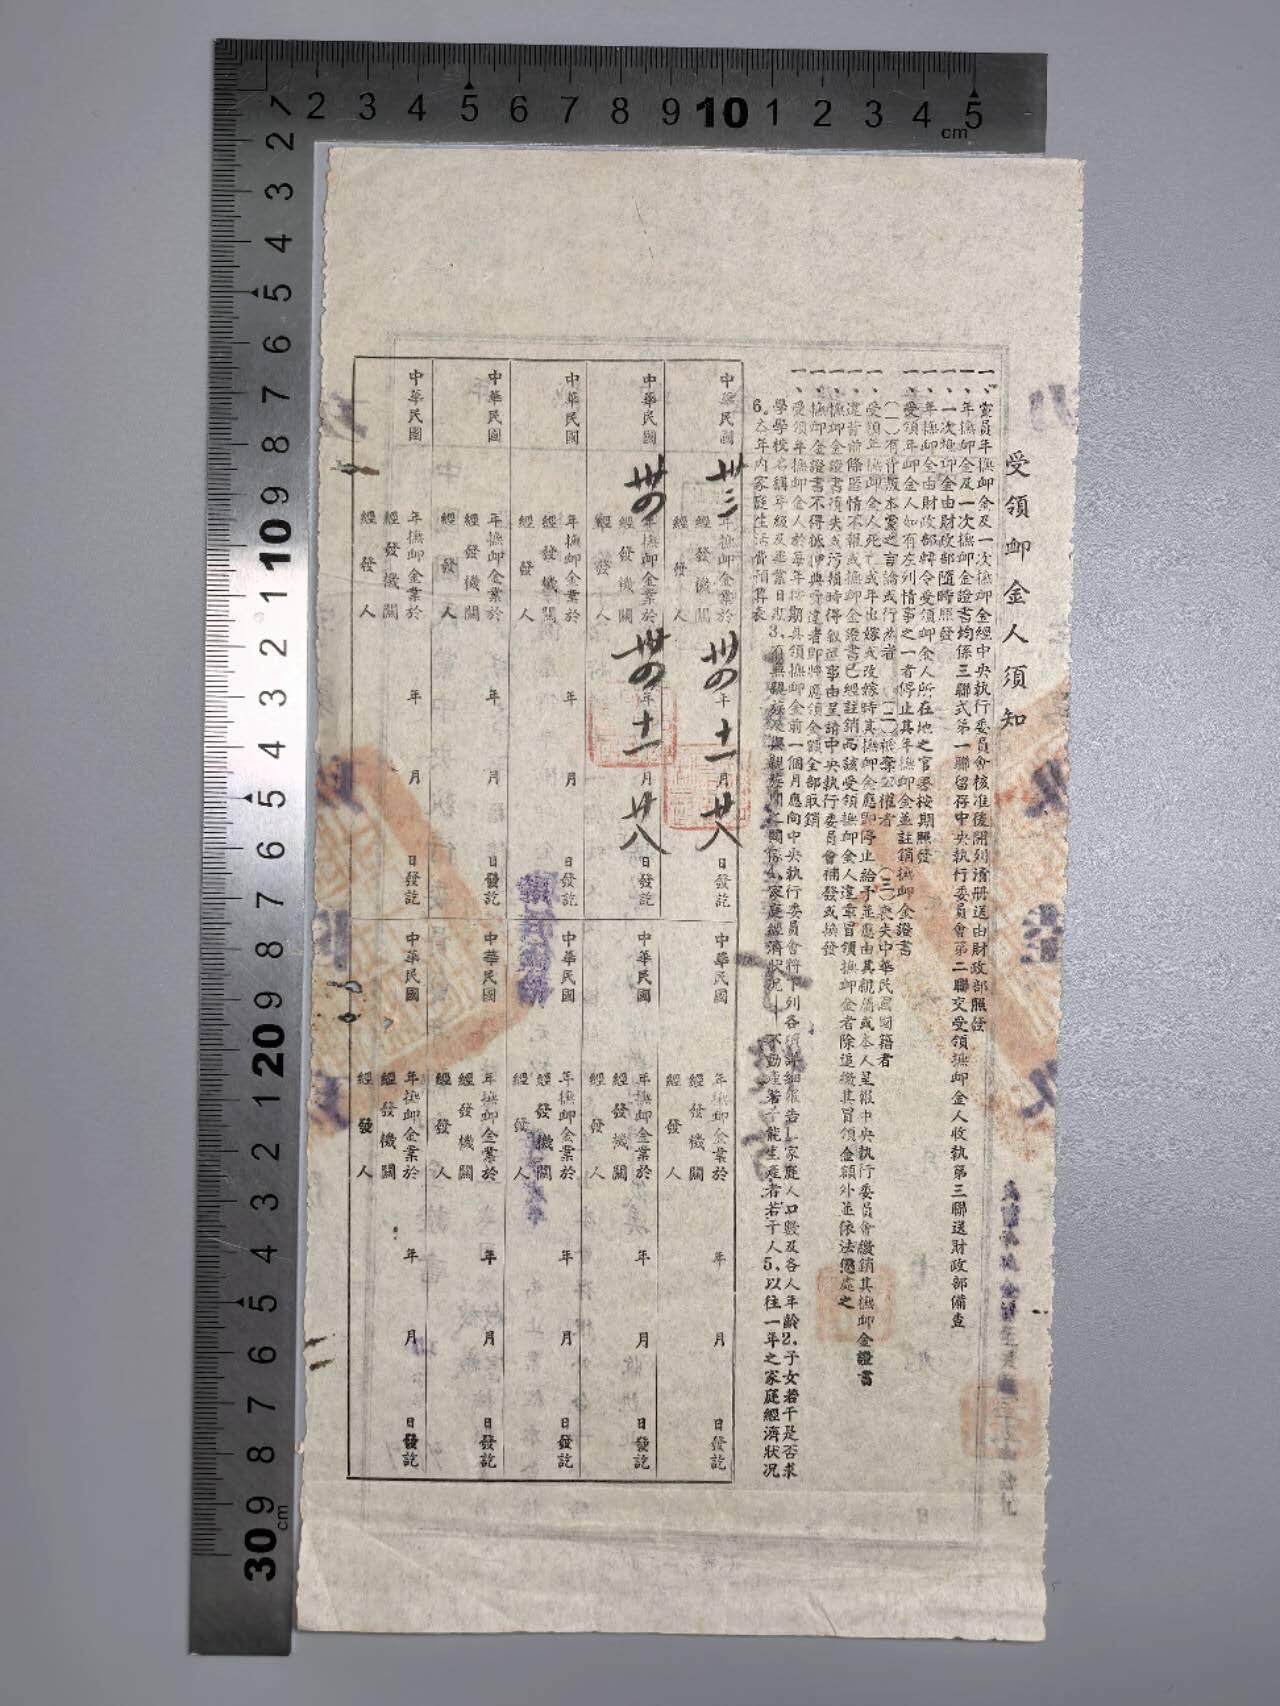 受領卹金人須知
一、黨員年撫卹金及一次撫卹金經中央執行委員會核准後開列清册送由財政部照發
一、年撫卹金及一次撫卹金證書均係三聯式第一聯留存中央執行委員會第二聯交受領撫卹金人收執第三聯送財政部備查
一、一次撫卹金由財政部隨時照發
一、年撫卹金由財政部轉令受領卹金人所在地之官署按期照發
一、受領年卹金人如有左列情事之一者停止其年撫卹金並註銷撫卹金證書
(一)有背叛本黨之言論或行為者 (二)褫奪公權者 (三)喪失中華民國國籍者
一、受領年撫卹金人死亡或年出嫁或改嫁時其撫卹金應即停止給予並應由其親屬或本人呈報中央執行委員會繳銷其撫卹金證書
一、違背前條匿情不報或撫卹金證書已經註銷而該受領撫卹金人違章冒領撫卹金者除追繳其冒領金額外並依法懲處之
一、撫卹金證書須失或污損時得敘述事由呈請中央執行委員會補發或換發
一、撫卹金證書不得抵押典當違者即將應領金額全部取銷
一、受領年撫卹金人於每年按期具領撫卹金前一個月應向中央執行委員會將下列各項詳細報告1.家庭人口數及各人年齡2.子女若干是否求
學學校名稱年級及畢業日期3.有無親族及與親族間之關係4.家庭經濟狀況—不動產若干能生產者若干人5.以往一年之家庭經濟狀況
6.本年內家庭生活費預算表
中華民國卅三年撫卹金業於卅四年十一月廿八日發訖
經發機關
經發人
中華民國卅四年撫卹金業於卅四年十一月廿八日發訖
經發機關
經發人
中華民國 年撫卹金業於 年 月 日發訖
經發機關
經發人
中華民國 年撫卹金業於 年 月 日發訖
經發機關
經發人
中華民國 年撫卹金業於 年 月 日發訖
經發機關
經發人
中華民國 年撫卹金業於 年 月 日發訖
經發機關
經發人
中華民國 年撫卹金業於 年 月 日發訖
經發機關
經發人
中華民國 年撫卹金業於 年 月 日發訖
經發機關
經發人
中華民國 年撫卹金業於 年 月 日發訖
經發機關
經發人
中華民國 年撫卹金業於 年 月 日發訖
經發機關
經發人
1 2 3 4 5 6 7 8 9 10 1 2 3 4 5 cm
2 3 4 5 6 7 8 9 10 1 2 3 4 5 6 7 8 9 20 1 2 3 4 5 6 7 8 9 30 cm